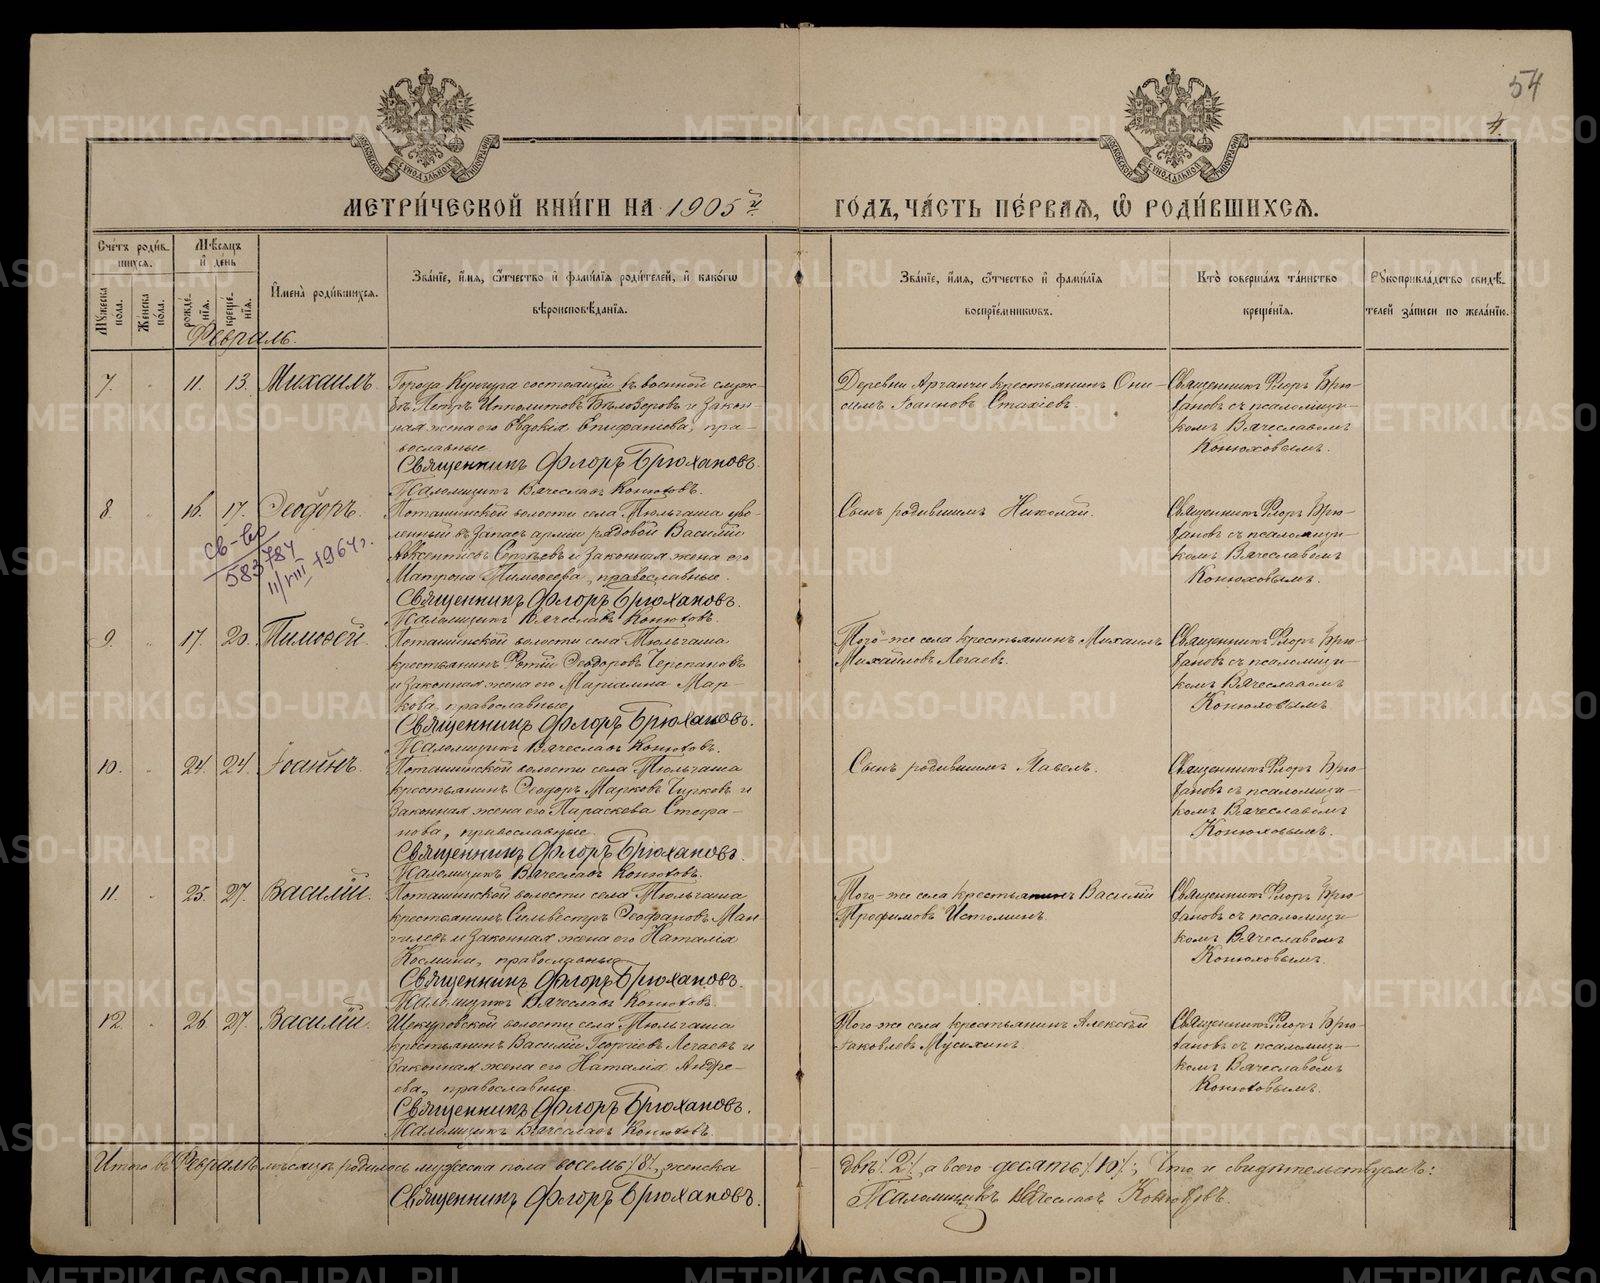 54
4.
МЕТРИ́ЧЕСКОЙ КНИ́ГИ НА 1905й ГО́ДЪ, ЧА́СТЬ ПЕ́РВАЯ, Ѡ РОДИ́ВШИХСЯ.
Сче́тъ роди́вшихся.
Му́жеска по́ла.
Же́нска по́ла.
Мѣ́сяцъ и́ день
рожде́нїя.
креще́нїя.
И҆мена̀ роди́вшихся.
Зва́нїе, и҆́мя, ѻ҆́тчество и҆ фами́лїя роди́телей, и҆ како́гѡ вѣроисповѣ́данїя.
Зва́нїе, и҆́мя, ѻ҆́тчество и҆ фами́лїя воспрїе́мникѡвъ.
Кто̀ соверша́лъ та́инство креще́нїя.
Рꙋкоприкла́дство свидѣ́телей за́писи по жела́нїю.
Февраль.
7. „ 11. 13. Михаилъ.
Города Кунгура состоящій въ военной служ-
бѣ Петръ Ипполитовъ Бѣлозеровъ и закон-
ная жена его Евдокія Епифанова, пра-
вославные.
Священникъ Флоръ Брюхановъ.
Псаломщикъ Вячеславъ Конюховъ.
Деревни Арганчи крестьянинъ Они-
симъ Іоанновъ Стахіевъ.
Священникъ Флоръ Брю-
хановъ съ псаломщи-
комъ Вячеславомъ
Конюховымъ.
8. „ 16. 17. Ѳеодоръ.
св-во
583784
11/VIII 1964 г.
Поташинской волости села Тюльгаша уво-
ленный въ запасъ арміи рядовой Василій
Авксентіевъ Сергѣевъ и законная жена его
Матрона Тимоѳеева, православные.
Священникъ Флоръ Брюхановъ.
Псаломщикъ Вячеславъ Конюховъ.
Сынъ родившимъ Николай.
Священникъ Флоръ Брю-
хановъ съ псаломщи-
комъ Вячеславомъ
Конюховымъ.
9. „ 17. 20. Тимоѳей.
Поташинской волости села Тюльгаша
крестьянинъ Фотій Ѳеодоровъ Черепановъ
и законная жена его Маріамна Мар-
кова, православные.
Священникъ Флоръ Брюхановъ.
Псаломщикъ Вячеславъ Конюховъ.
Того-же села крестьянинъ Михаилъ
Михайловъ Легаевъ.
Священникъ Флоръ Брю-
хановъ съ псаломщи-
комъ Вячеславомъ
Конюховымъ.
10. „ 24. 24. Іоаннъ.
Поташинской волости села Тюльгаша
крестьянинъ Ѳеодоръ Марковъ Чирковъ и
законная жена его Параскева Стефа-
нова, православные.
Священникъ Флоръ Брюхановъ.
Псаломщикъ Вячеславъ Конюховъ.
Сынъ родившимъ Павелъ.
Священникъ Флоръ Брю-
хановъ съ псаломщи-
комъ Вячеславомъ
Конюховымъ.
11. „ 25. 27. Василій.
Поташинской волости села Тюльгаша
крестьянинъ Сильвестръ Ѳеофановъ Ман-
чилевъ и законная жена его Наталія
Космина, православные.
Священникъ Флоръ Брюхановъ.
Псаломщикъ Вячеславъ Конюховъ.
Того-же села крестьянинъ Василій
Трофимовъ Истоминъ.
Священникъ Флоръ Брю-
хановъ съ псаломщи-
комъ Вячеславомъ
Конюховымъ.
12. „ 26. 27. Василій.
волости села Тюльгаша
крестьянинъ Василій Георгіевъ Легаевъ и
законная жена его Наталія Андре-
ева, православные.
Священникъ Флоръ Брюхановъ.
Псаломщикъ Вячеславъ Конюховъ.
Того-же села крестьянинъ Алексѣй
Іаковлевъ Мусихинъ.
Священникъ Флоръ Брю-
хановъ съ псаломщи-
комъ Вячеславомъ
Конюховымъ.
Итого въ Февралѣ мѣсяцѣ родилось мужеска пола восемь /8/, женска двѣ /2/, а всего десять /10/; Что и свидѣтельствуемъ:
Священникъ Флоръ Брюхановъ.
Псаломщикъ Вячеславъ Конюховъ.